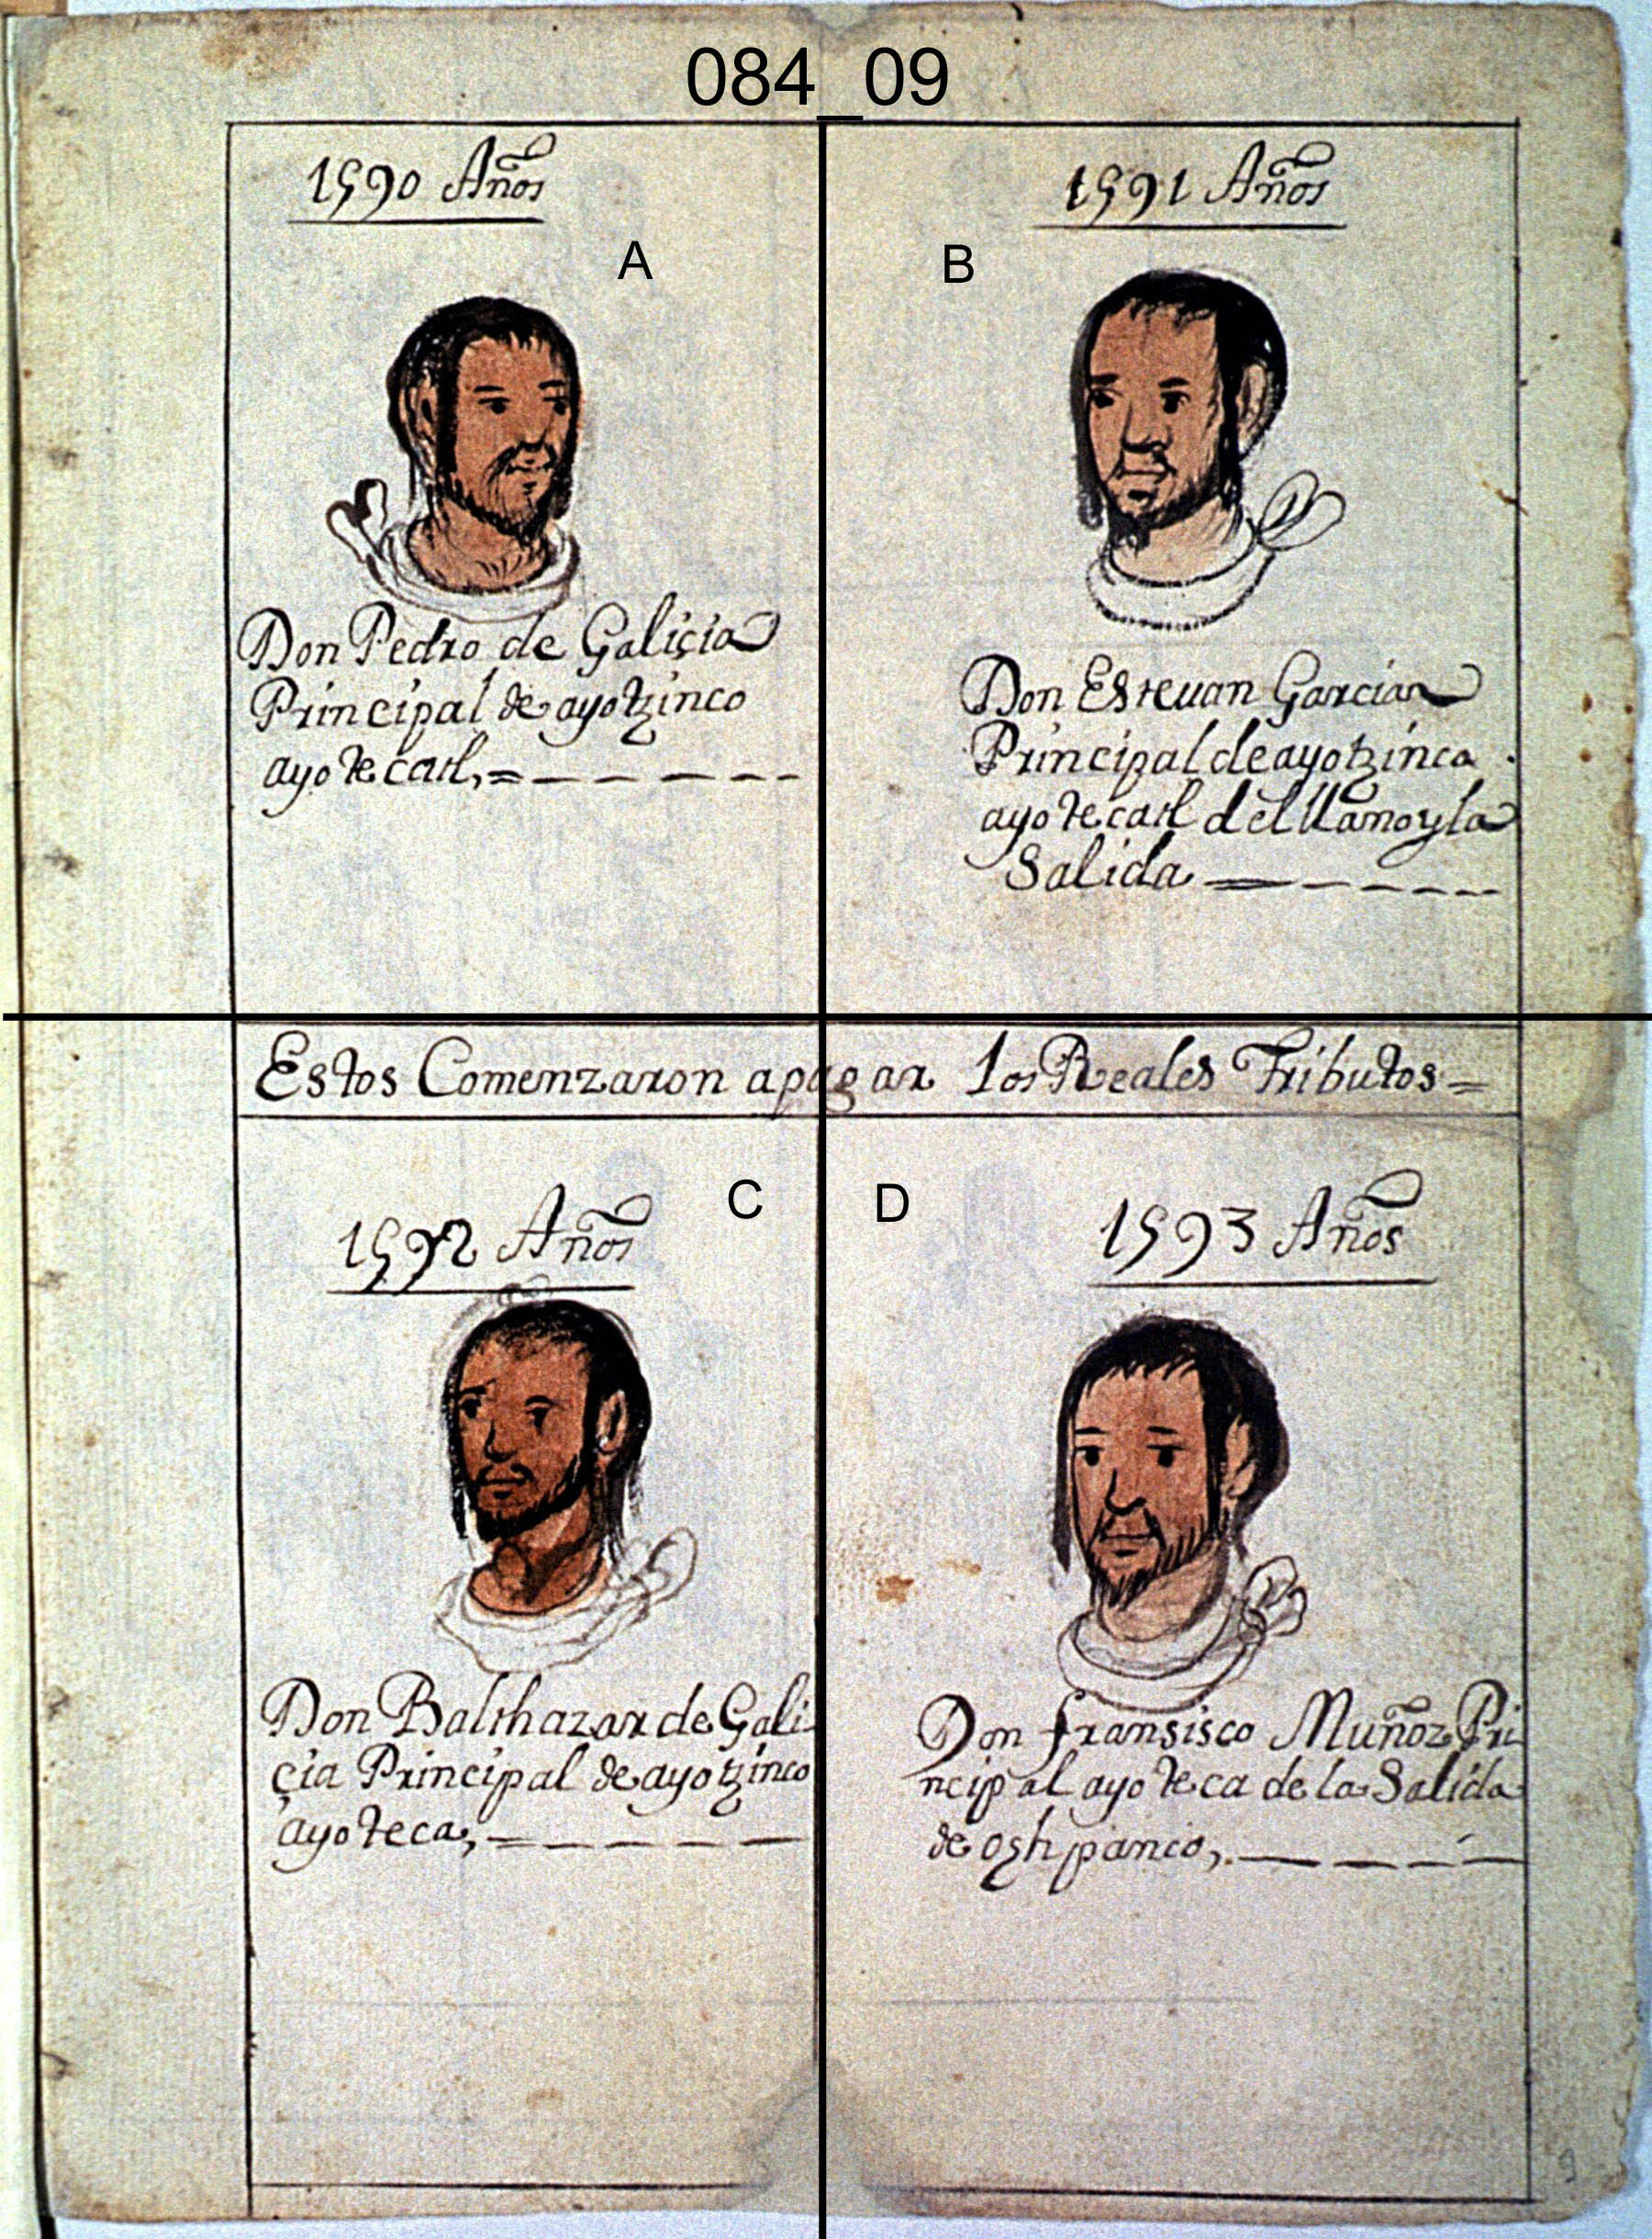 084_09
1590 Años
A
Don Pedro de Galiçia
Principal de ayotzinco
ayotecatl,=
1591 Años
B
Don Esteuan Garcia
Principal de ayotzinca
ayotecatl del llano y la
Salida
Estos Comenzaron apagar los Reales Tributos=
1592 Años
C
Don Balthazar de Gali
çia Principal de ayotzinco
ayoteca,
D
1593 Años
Don fransisco Muñoz Pri
ncipal ayoteca de la Salida
de
9